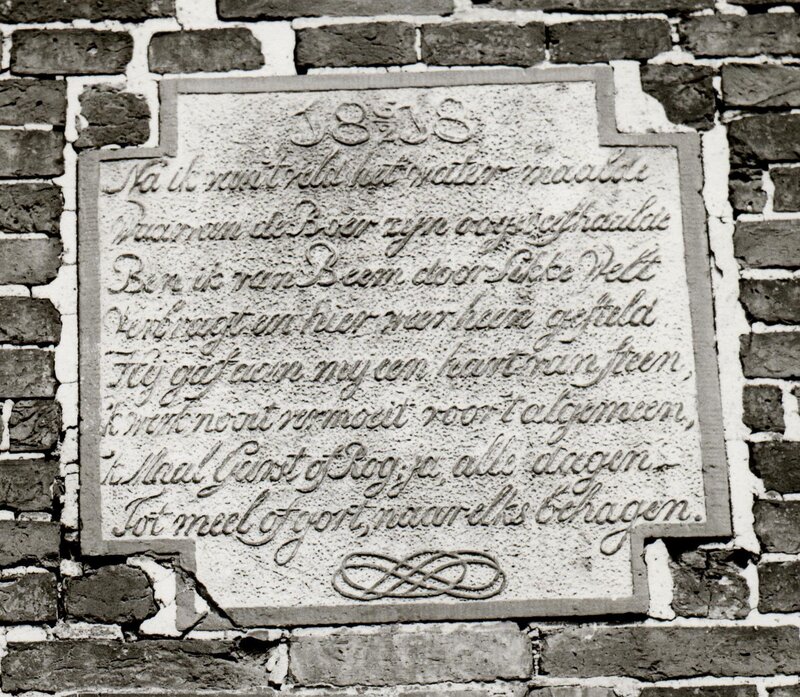 18 18
Na ikruit veld het water maalde
Waarvan de Boer zyn oogst afhaalde
Ben ik van Beem door Sikke Velt
Verbragt en hier weer heen gesteld
Hij gaf aan my een hart van steen,
Ik werk nooit vermoeit voor 't algemeen,
'k Maal Garst of Rog, ja, alle dagen
Tot meel of gort, naar elks behagen.